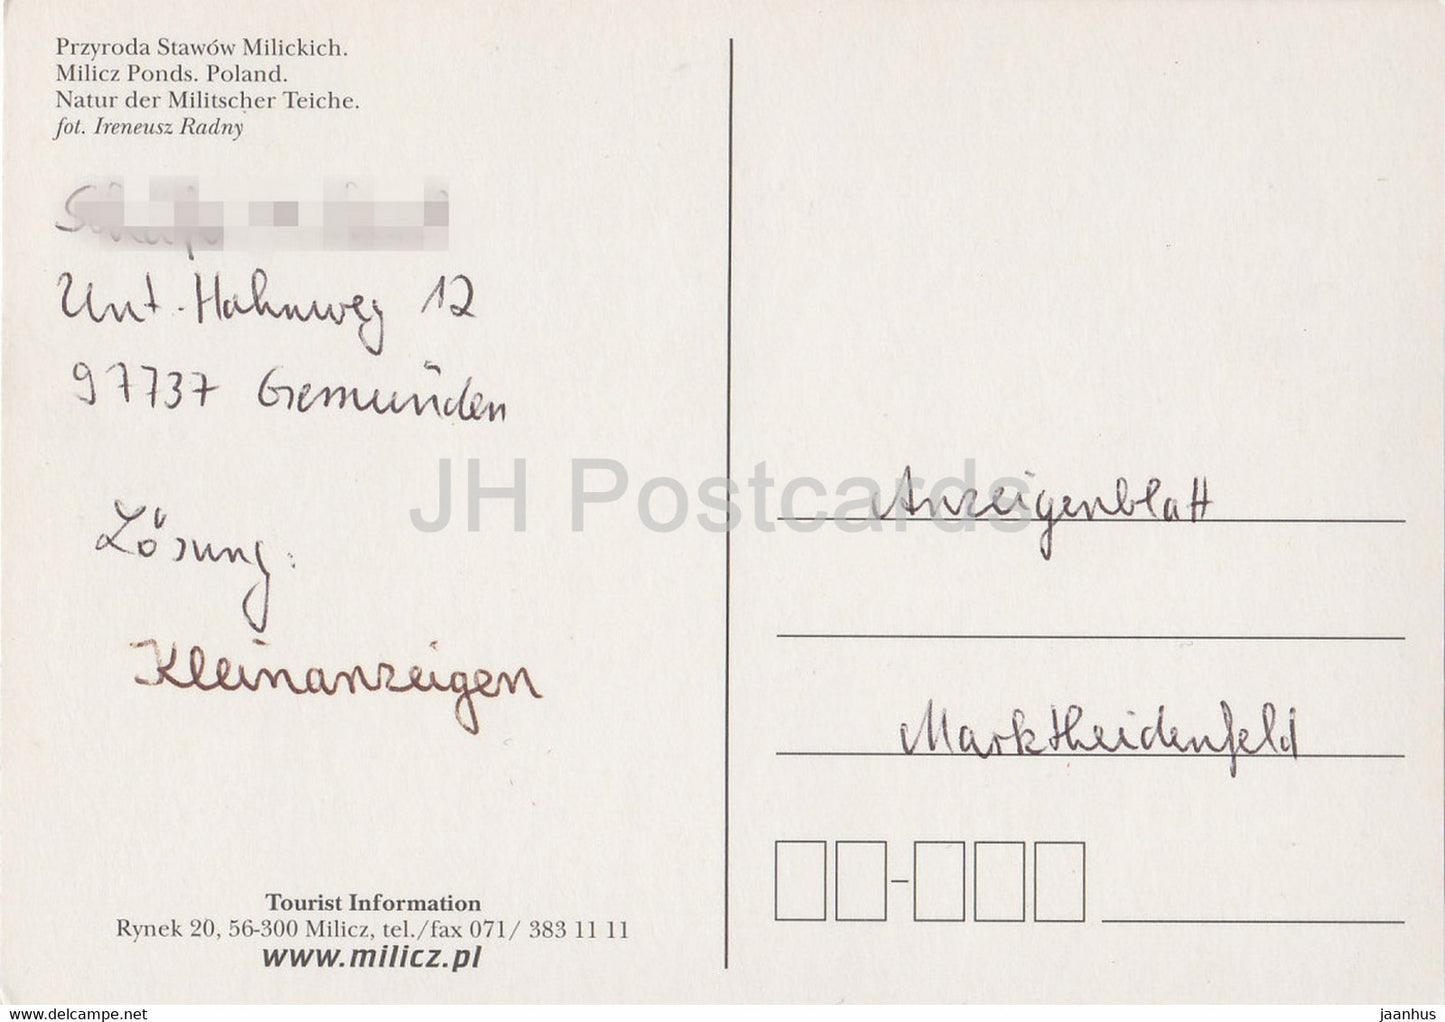 Przyroda Stawów Milickich.
Milicz Ponds. Poland.
Natur der Militscher Teiche.
fot. Ireneusz Radny
Unt. Hahnweg 12
97737 Gemünden
Lösung:
Kleinanzeigen
Tourist Information
Rynek 20, 56-300 Milicz, tel./fax 071/ 383 11 11
www.milicz.pl
JH Postcards
Anzeigenblatt
Marktheidenfeld
hippostcard.com
jaanhus